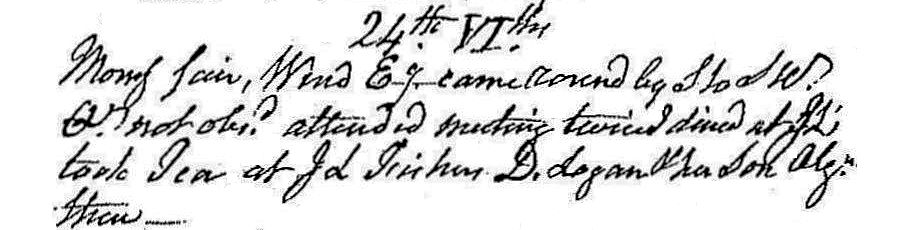 24th. VIth.
Morng fair, Wind Ey. came round by S to SW.
&c. not obsd. attended meeting twice dined at
took Tea at Jd Fishers D. Logan & her Son Algn.
there —